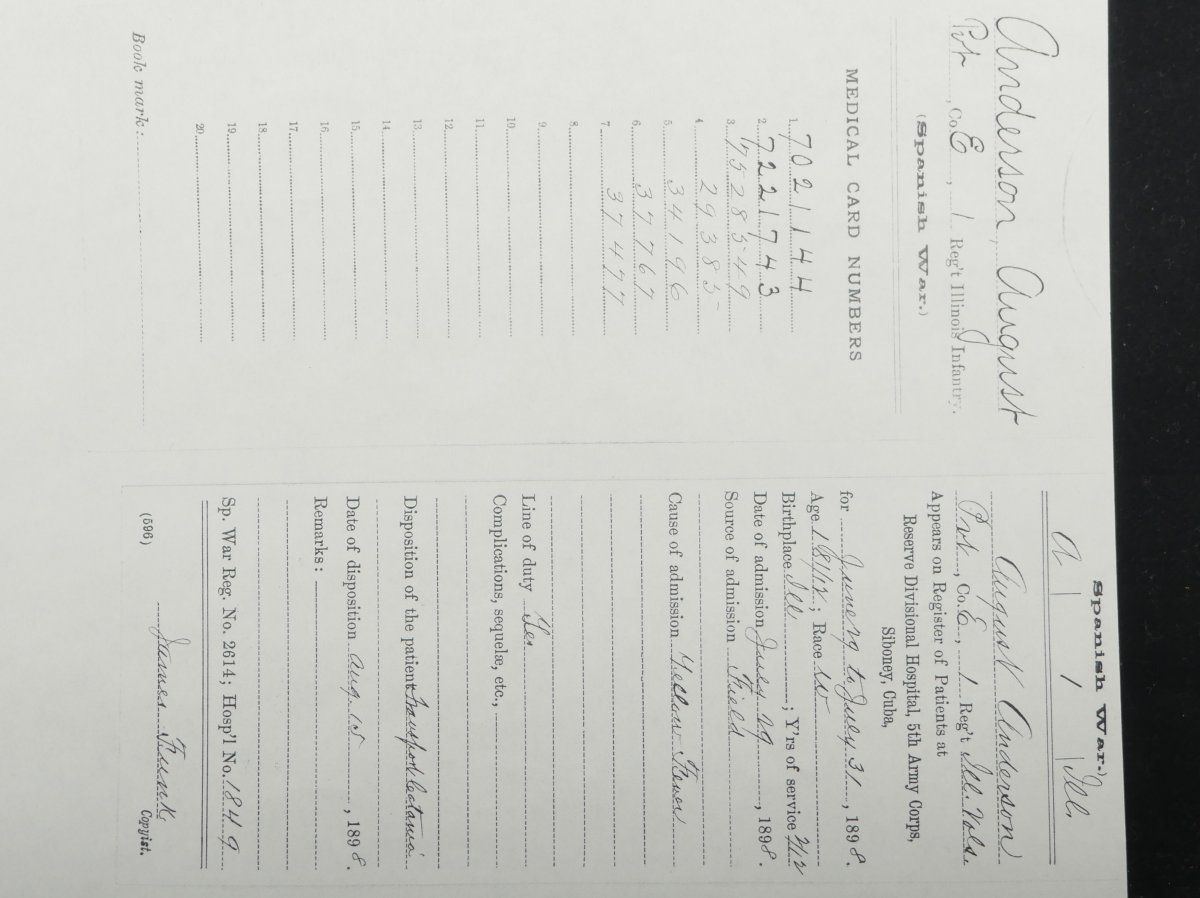 Anderson, August
Pvt, Co. E, 1 Reg't Illinois Infantry.
(Spanish War.)
MEDICAL CARD NUMBERS
1. 7021144
2. 7221743
3. 7528549
4. 29385
5. 34196
6. 37767
7. 37477
8.
9.
10.
11.
12.
13.
14.
15.
16.
17.
18.
19.
20.
Book mark:
Spanish War.
A | 1 | Ill.
August Anderson
Pvt., Co. E, 1 Reg't Ill. Vols.
Appears on Register of Patients at
Reserve Divisional Hospital, 5th Army Corps,
Siboney, Cuba,
for to July 31, 1898.
Age 18 1/12; Race W
Birthplace Ill; Y'rs of service 2/12
Date of admission 29, 1898.
Source of admission Field
Cause of admission Yellow Fever
Line of duty Yes
Complications, sequelæ, etc.,
Disposition of the patient
Date of disposition Aug. 15, 1898.
Remarks:
Sp. War Reg. No. 2614; Hosp'l No. 1849
James Funk
(596) Copyist.